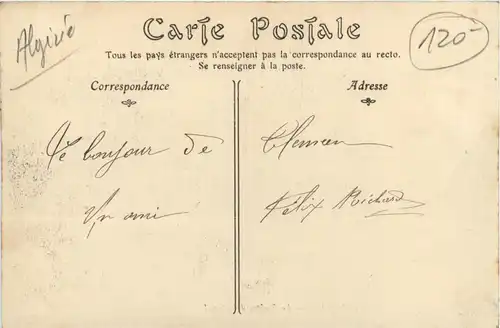 Algérie
120-
Carte Postale
Tous les pays étrangers n'acceptent pas la correspondance au recto.
Se renseigner à la poste.
Correspondance
Adresse
le bonjour de
Un ami
Tlemcen
Félix Richard